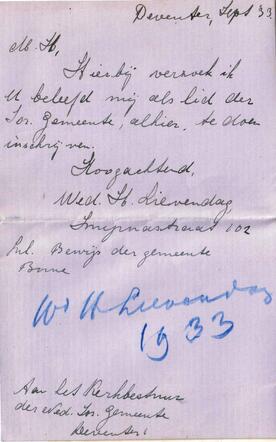 Deventer, Sept 33.
M. H,
Hierbij verzoek ik
U beleefd mij als lid der
Isr. Gemeente, alhier, te doen
inschrijven.
Hoogachtend,
Wed. H. Lievendag
Smijrnastraat 102
Inl. Bewijs der gemeente
Borne
Wd H Lievendag
1933
Aan het Kerkbestuur
der Ned. Isr. Gemeente
Deventer